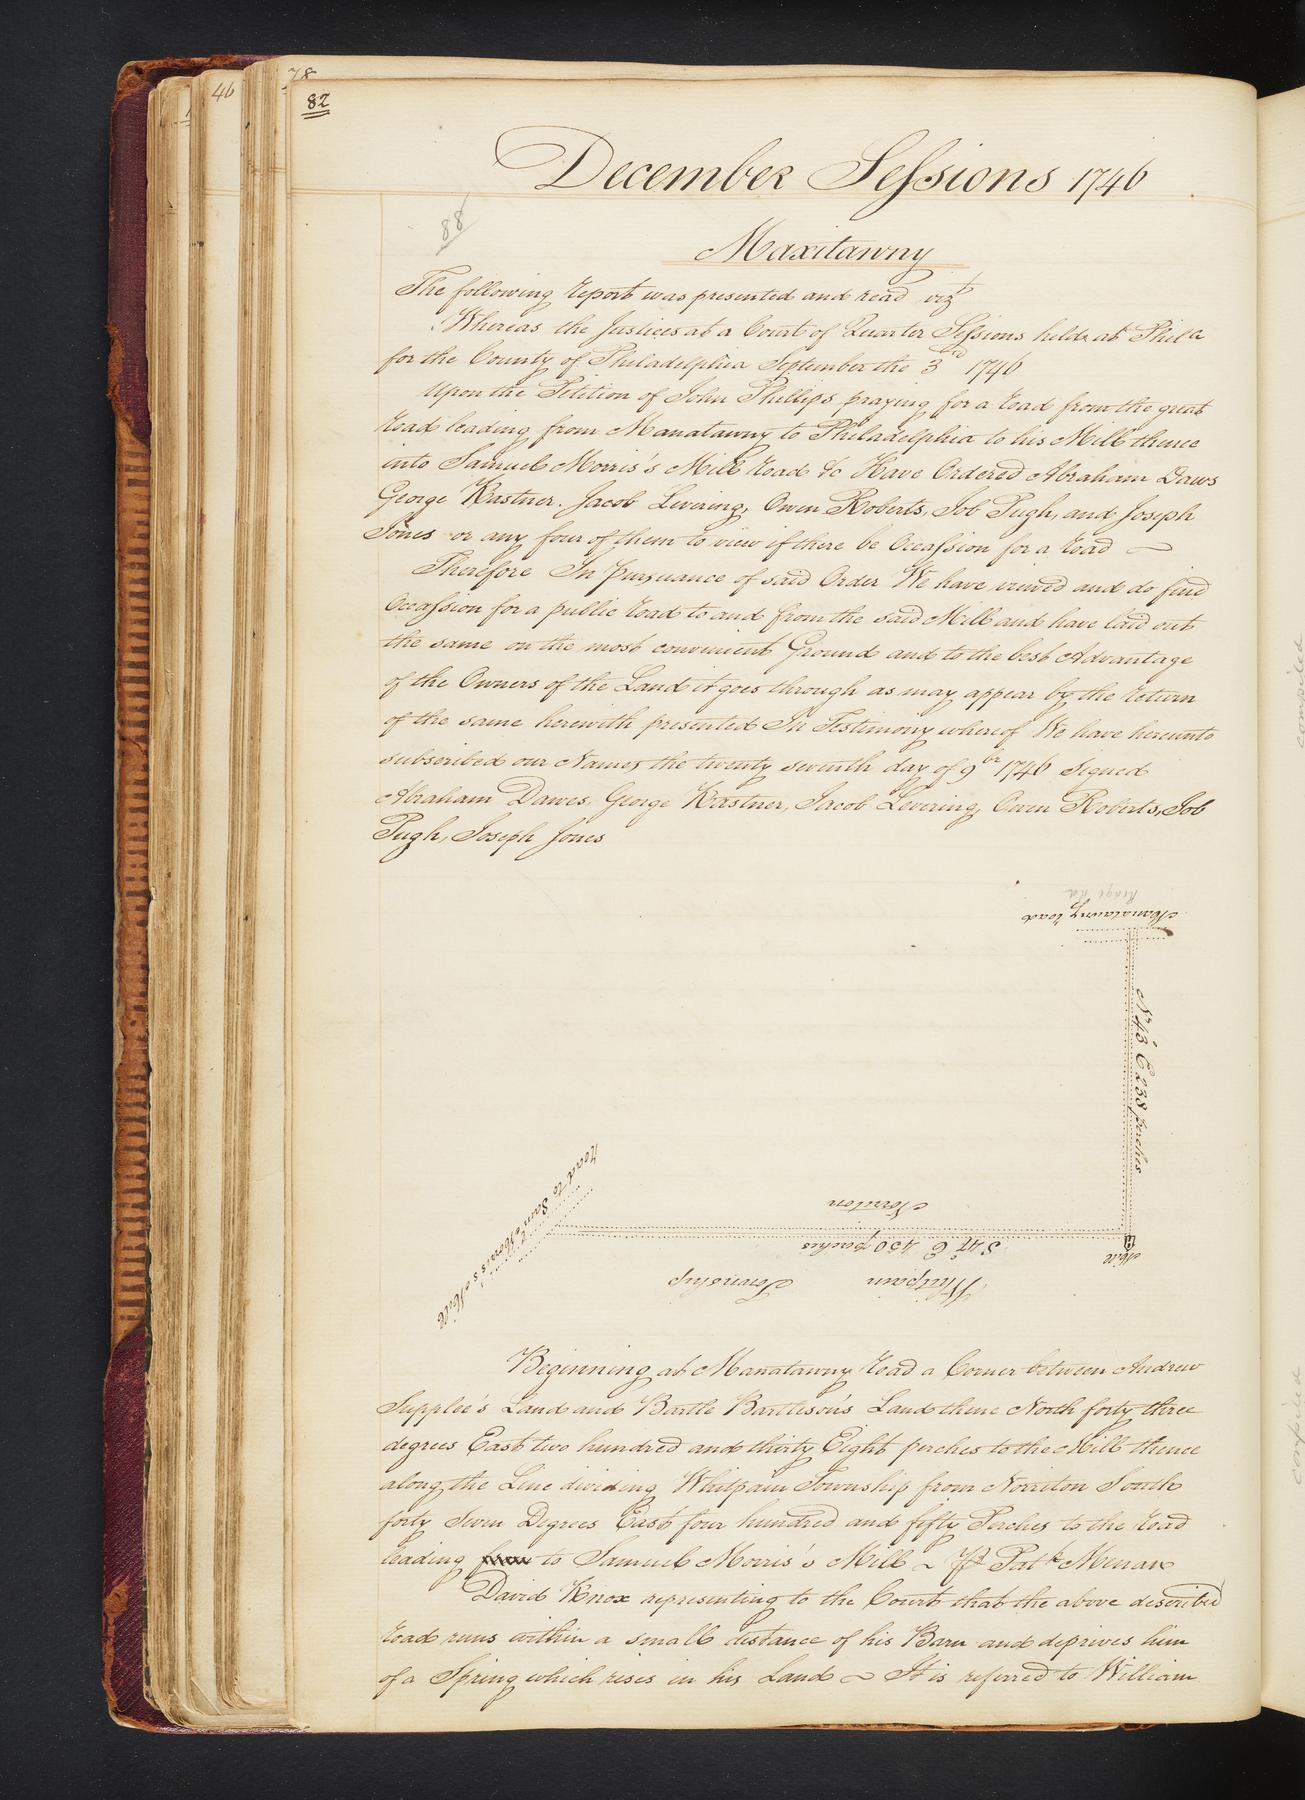 46
78
82
December Sessions 1746
88
Maxitawny
The following report was presented and read vizt
Whereas the Justices at a Court of Quarter Sessions helde at Phila
for the County of Philadelphia September the 3rd 1746
Upon the Petition of John Phillips praying for a road from the great
road leading from Manatawny to Philadelphia to his Mill thence
into Samuel Morris's Mill road &c Have Ordered Abraham Daws
George Kastner. Jacob Levering, Owen Roberts, Job Pugh, and Joseph
Jones or any four of them to view if there be Occassion for a road
Therefore In Pursuance of said Order We have viewed and do find
Occassion for a public road to and from the said Mill and have laid out
the same on the most convinient Ground and to the best Advantage
of the Owners of the Land it goes through as may appear by the return
of the same herewith presented In Testimony whereof We have hereunto
subscribed our Names the twenty seventh day of 9br 1746 Signed
Abraham Dawes, George Kastner, Jacob Levering, Owen Roberts, Job
Pugh, Joseph Jones
Ridge Rd
Manatawny road
No 43° E 238 perches
Road to Sam Morris's Mill
Norriton
S 47° E 450 perches
Mill
Whitpain Township
Beginning at Manatawny road a Corner between Andrew
Supplee's Land and Bartle Bartleson's Land thence North forty three
degrees East two hundred and thirty Eight perches to the Mill thence
along the Line dividing Whitpain Township from Norriton South
forty seven Degrees East four hundred and fifty Perches to the road
leading from to Samuel Morris's Mill ~ Pat
David Knox representing to the Court that the above described
road runs within a small distance of his Barn and deprives him
of a Spring which rises in his Land ~ It is referred to William
compiled
compiled